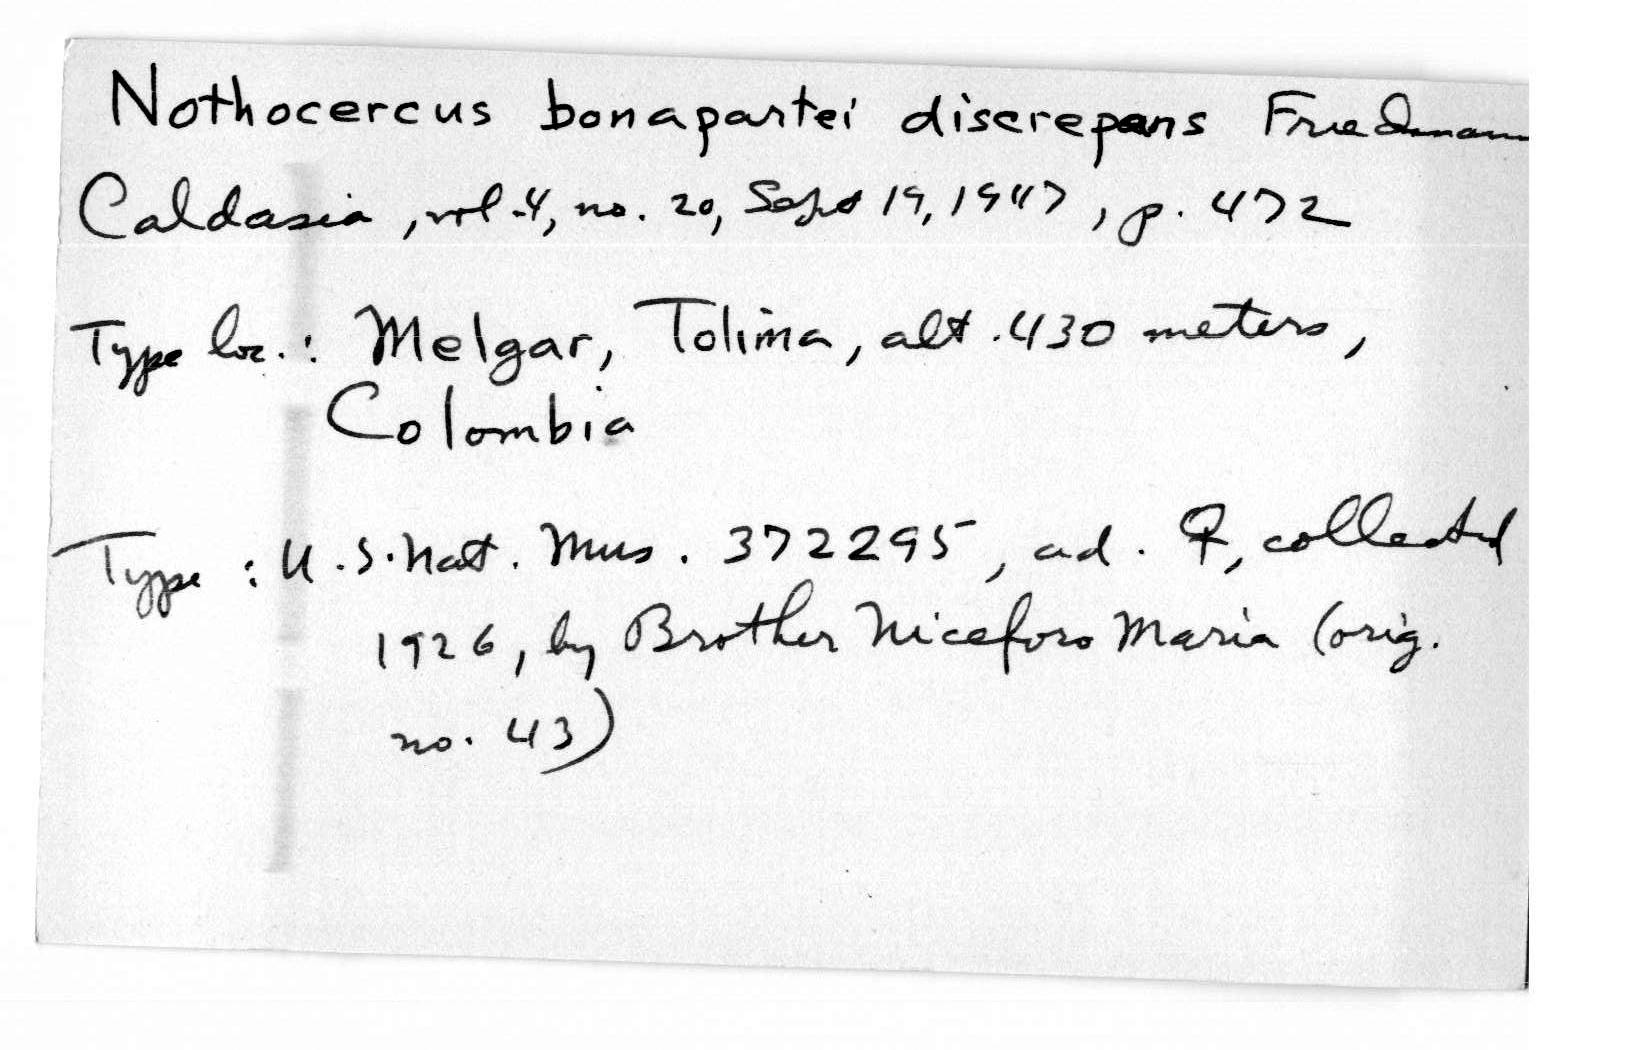 Nothocercus bonapartei discrepans Friedmann
Caldasia, vol. 4, no. 20, Sept 19, 1947, p. 472
Type loc.: Melgar, Tolima, alt. 430 meters,
Colombia
Type: U.S. Nat. Mus. 372295, ad. ♀, collected
1926, by Brother Niceforo Maria (orig.
no. 43)